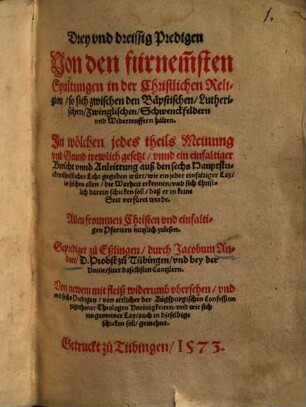 1.
Drey vnd dreissig Predigen
Von den fürnemsten
Spaltungen in der Christlichen Reli-
gion / so sich zwischen den Bäpstischen / Lutheri-
schen / Zwinglischen / Schwenckfeldern
vnd Widerteuffern halten.
In wölchen jedes theils Meinung
vnd Grund trewlich gesetzt / vnnd ein einfaltiger
Bericht vnnd Anleittung auß den sechs Hauptstu-
cken Christlicher Lehr gegeben würt / wie ein jeder einfaltiger Lay /
in sölchen allen / die Warheit erkennen / vnd sich Christ-
lich darein schicken soll / daß er in keine
Sect verfüret werde.
Allen frommen Christen vnd einfalti-
gen Pfarrern nutzlich zulesen.
Geprediget zu Eßlingen / durch Jacobum An-
dree / D. Probst zu Tübingen / vnd bey der
Vniuersitet daselbsten Cantzlern.
Von newem mit fleiß widerumb vbersehen / vnd
mit Predigen / von etlicher der Augspurgischen Confession
Theologen Vneinigkeiten / vnd wie sich
ein gemeiner Lay / auch in dieselbige
schicken soll / gemehret.
Getruckt zu Tübingen / 1573.